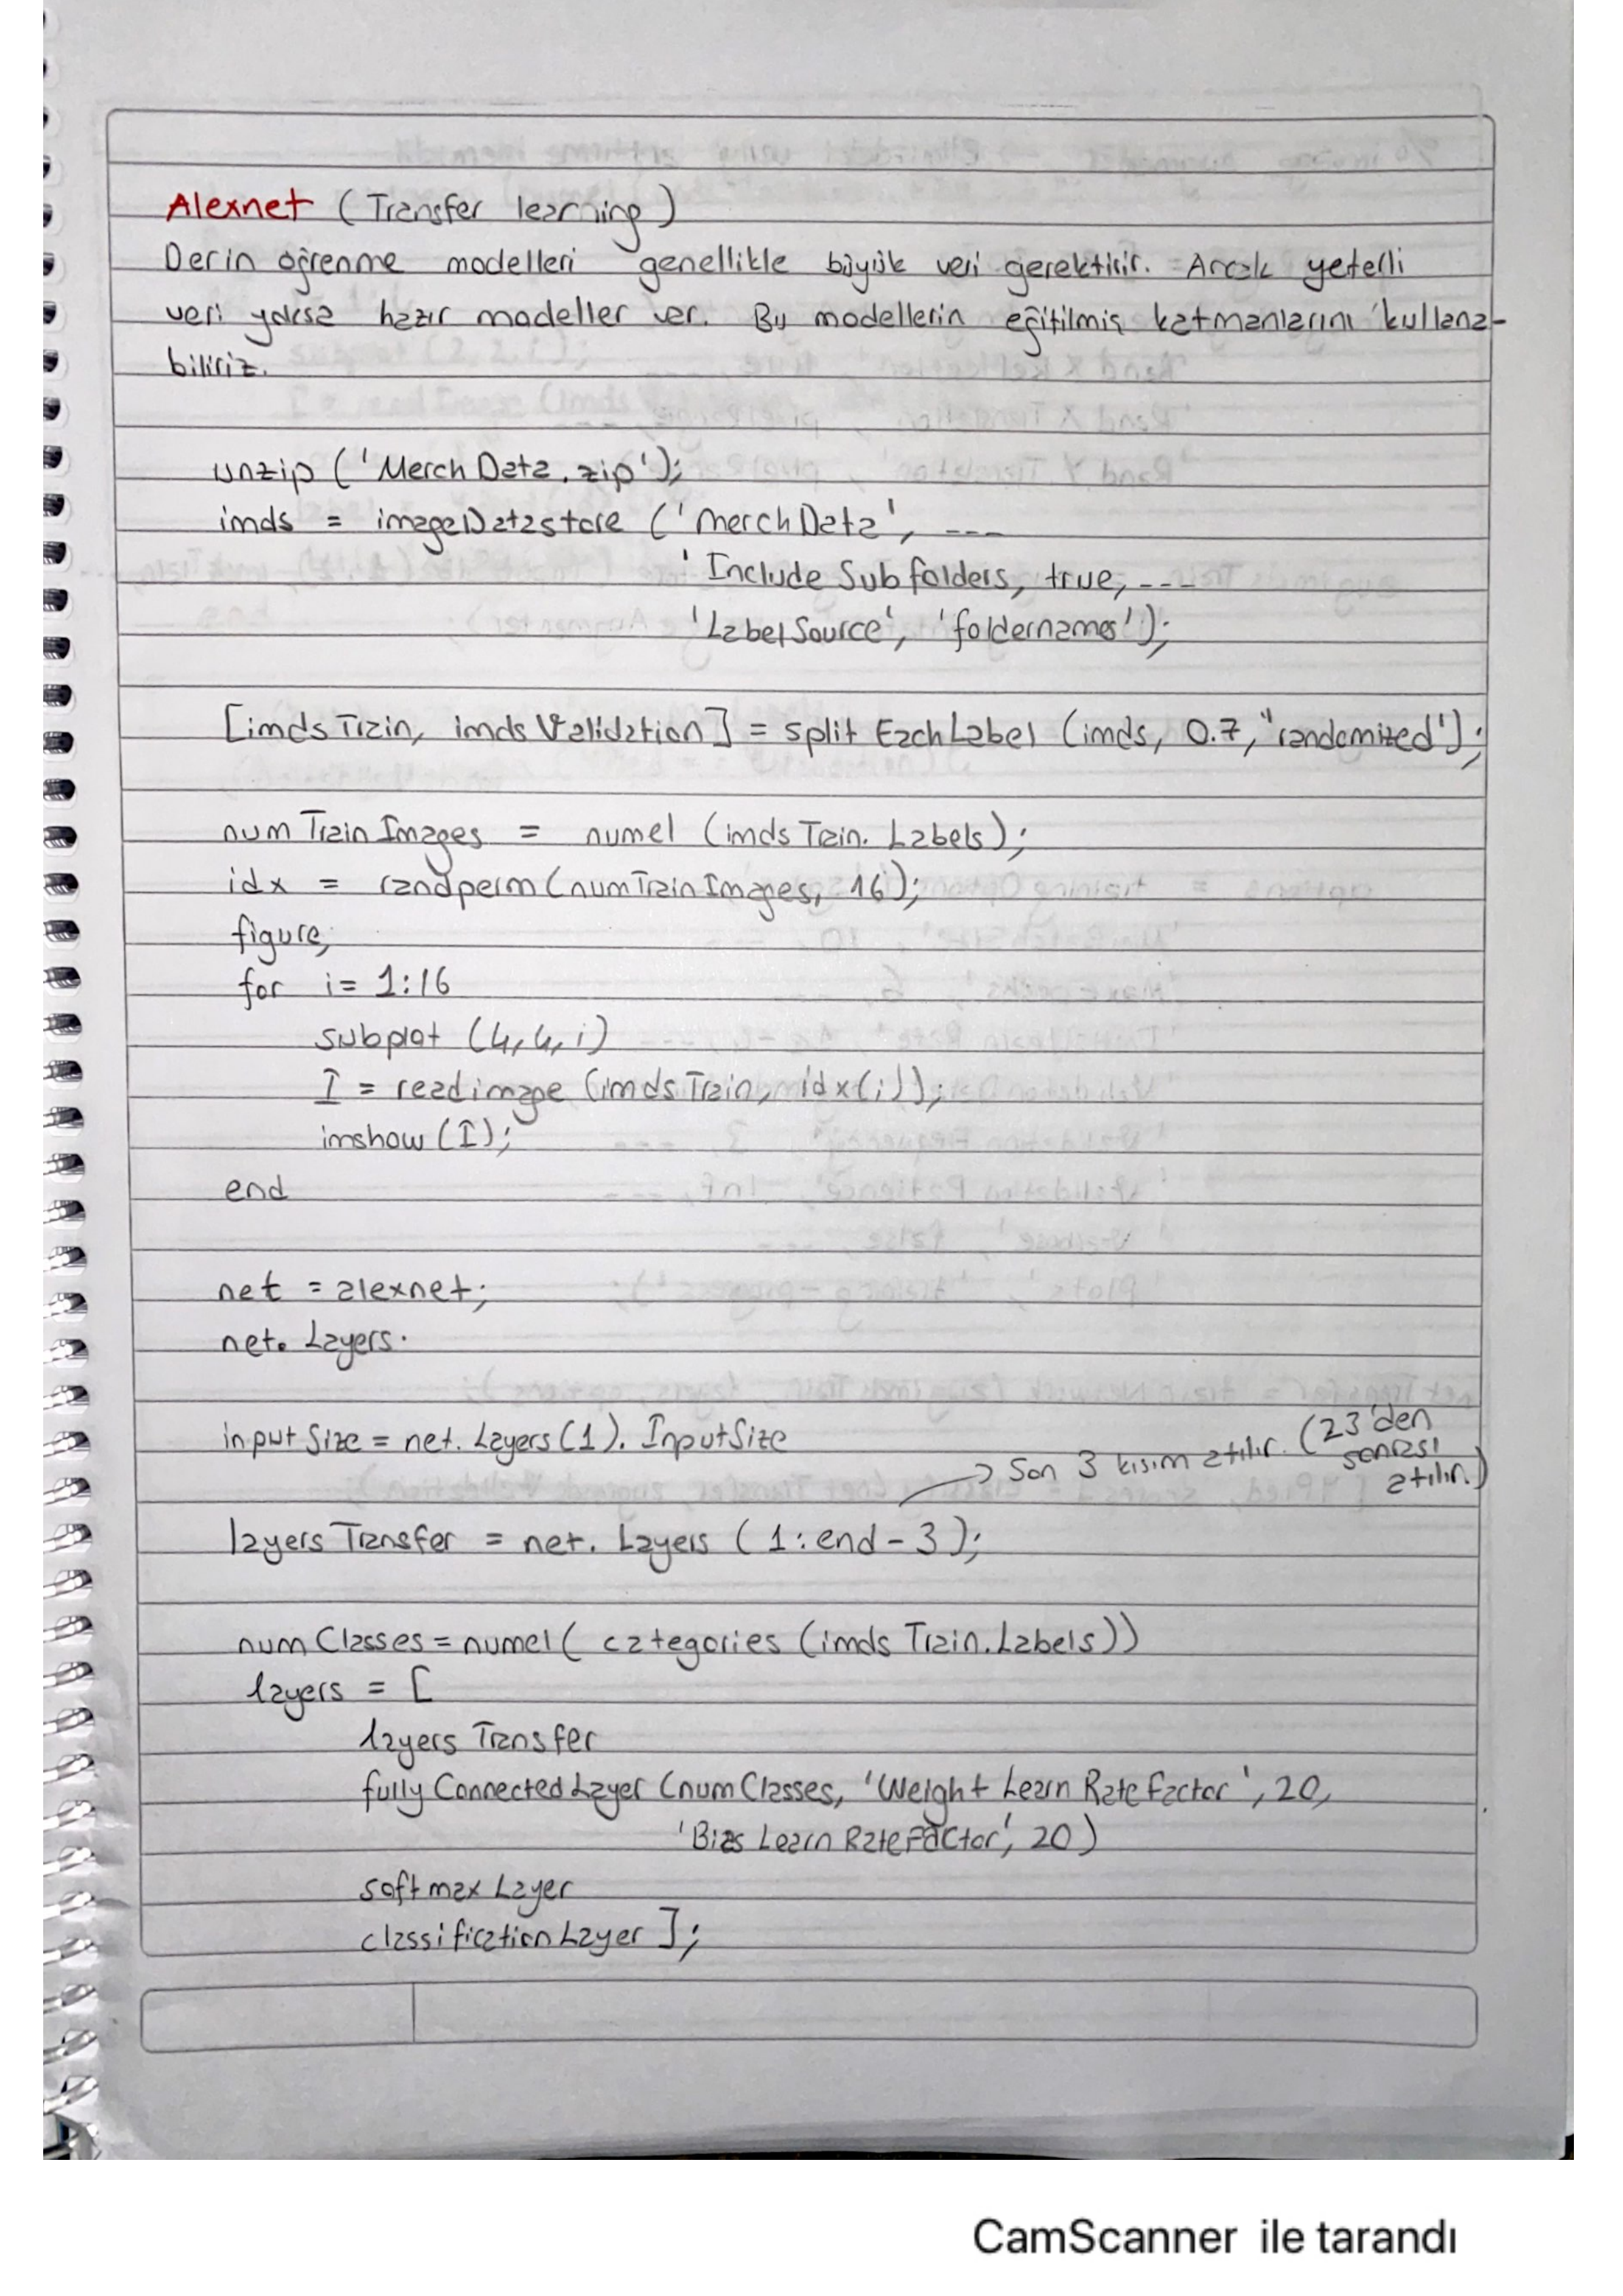 Alexnet (Transfer learning)
Derin öğrenme modelleri genellikle büyük veri gerektirir. Ancak yeterli
veri yoksa hazır modeller var. Bu modellerin eğitilmiş katmanlarını kullana-
biliriz.
unzip ('MerchData.zip');
imds = imageDatastore ('MerchData', ---
'IncludeSubfolders, true, ---
'LabelSource', 'foldernames');
[imdsTrain, imdsValidation] = splitEachLabel (imds, 0.7, "randomized');
numTrainImages = numel (imdsTrain.Labels);
idx = randperm(numTrainImages, 16);
figure;
for i= 1:16
subplot (4,4,i)
I = readimage (imdsTrain, idx(i));
imshow(I);
end
net = alexnet;
net.Layers.
inputSize = net.Layers(1).InputSize
→ Son 3 kısım atılır. (23'den
sonrası
atılır.)
layersTransfer = net.Layers (1:end-3);
numClasses = numel( categories (imdsTrain.Labels))
layers = [
layersTransfer
fullyConnectedLayer (numClasses, 'WeightLearnRateFactor', 20,
'BiasLearnRateFactor', 20)
softmaxLayer
classificationLayer ];
CamScanner ile tarandı